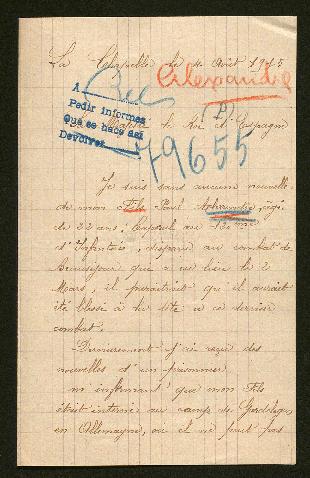 La Chapelle le 4 Août 1915
Alexandre
A
Pedir informes
Que se hace así
Devolver
(A)
Majesté le Roi d'Espagne
79655
Je suis sans aucune nouvelle
de mon Fils Paul Alexandre, âgé
de 22 ans, Caporal au
d'Infanterie, disparu au combat de
Beauséjour qui a eu lieu le 2
Mars, il paraîtrait qu'il aurait
été blessé à la tête à ce dernier
combat.
Dernièrement j'ai reçu des
nouvelles d'un prisonnier
m'informant que mon Fils
était interné au camp de
en Allemagne, où il ne peut pas